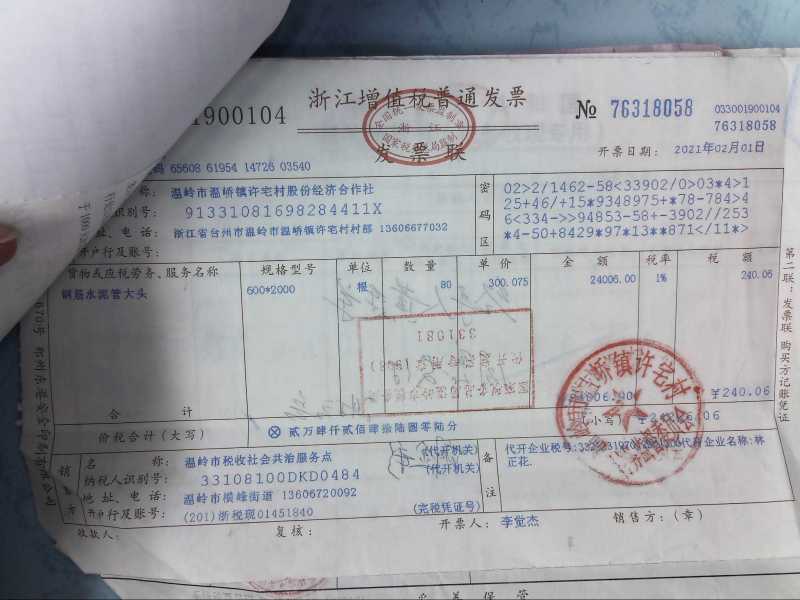 1900104
浙江增值税普通发票
发票联
№ 76318058
033001900104
76318058
开票日期: 2021年02月01日
码 65608 61954 14726 03540
称: 温岭市温峤镇许宅村股份经济合作社
识别号: 91331081698284411X
址、电话: 浙江省台州市温岭市温峤镇许宅村村部 13606677032
开户行及账号:
密码区
02>2/1462-58<33902/0>03*4>1
25+46/+15*9348975+*78-784>4
6<334->>94853-58+-3902//253
*4-50+8429*97*13**871</11*>
货物或应税劳务、服务名称 规格型号 单位 数量 单价 金额 税率 税额
钢筋水泥管大头 600*2000 根 80 300.075 24006.00 1% 240.06
331081
合计 ¥240.06
价税合计(大写) ⊗ 贰万肆仟贰佰肆拾陆圆零陆分 (小写)
销售方
名称: 温岭市税收社会共治服务点 (代开机关)
纳税人识别号: 33108100DKD0484 (代开机关)
地址、电话: 温岭市横峰街道 13606720092
开户行及账号: (201)浙税现01451840 (完税凭证号)
备注
代开企业税号: 代开企业名称:林
正花.
收款人: 复核: 开票人: 李觉杰 销售方:(章)
第二联:发票联 购买方记账凭证
桥镇许宅村